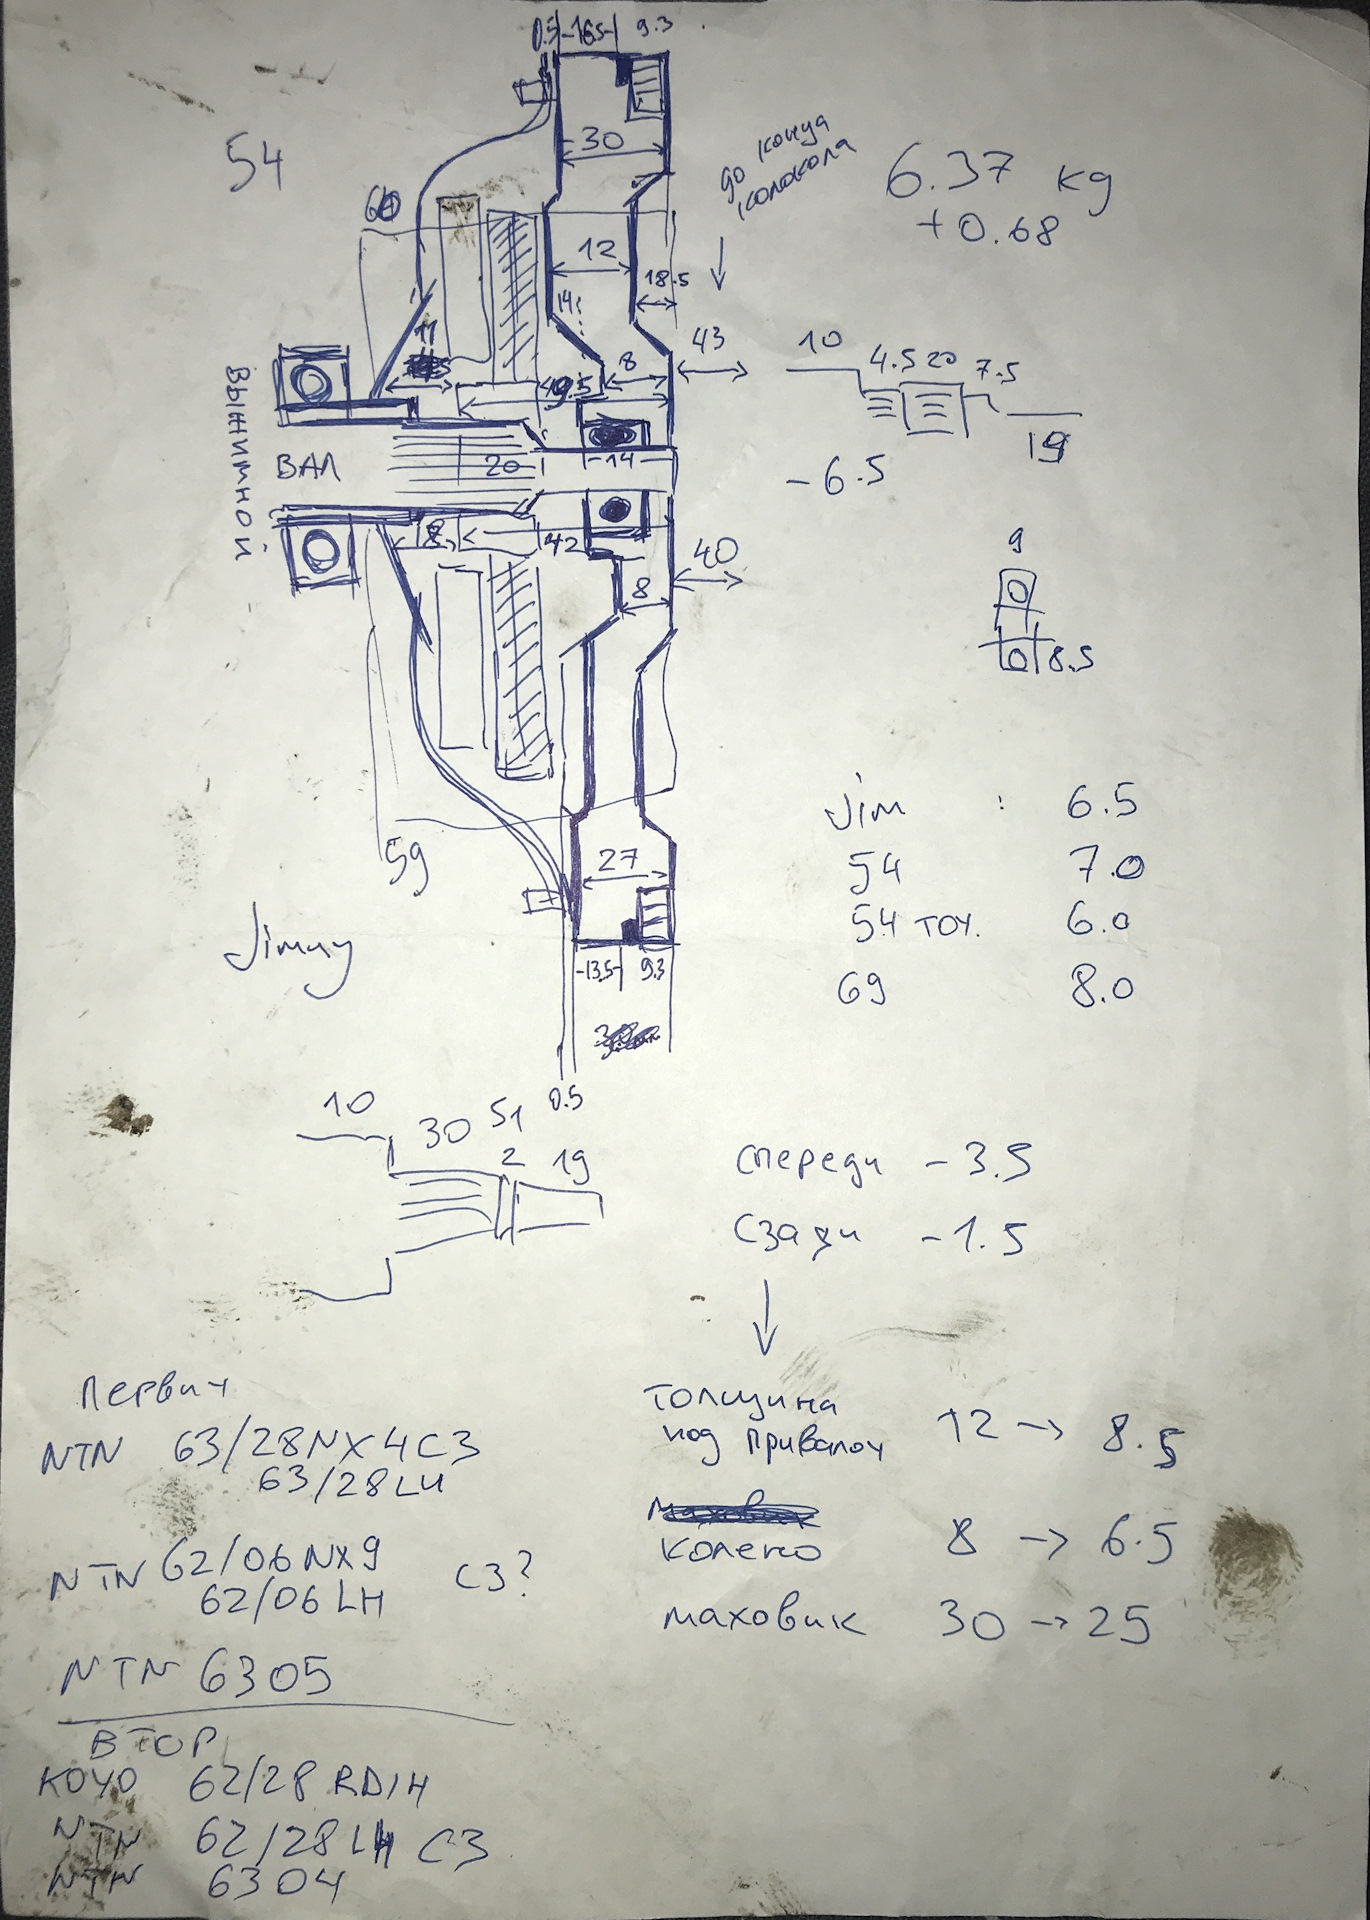 0.5 16.5 9.3
54
30
до конца
колокола
6.37 kg
+0.68
60
12
18.5
14
43
11
8
10 4.5 20 7.5
19
9.5
выжимной
ВАЛ
20
14
-6.5
18
42
40
8
9
8.5
59
27
Jimny
13.5 9.3
0.5
Jim : 6.5
54 7.0
54 точ. 6.0
69 8.0
10 30 51
2 19
спереди -3.5
сзади -1.5
Первич
NTN 63/28NX4C3
63/28LH
NTN 62/06NX9
62/06LH C3?
NTN 6305
ВТОР
KOYO 62/28 RD1H
NTN 62/28LH C3
NTN 6304
толщина
под привалоч 12 → 8.5
колено 8 → 6.5
маховик 30 → 25